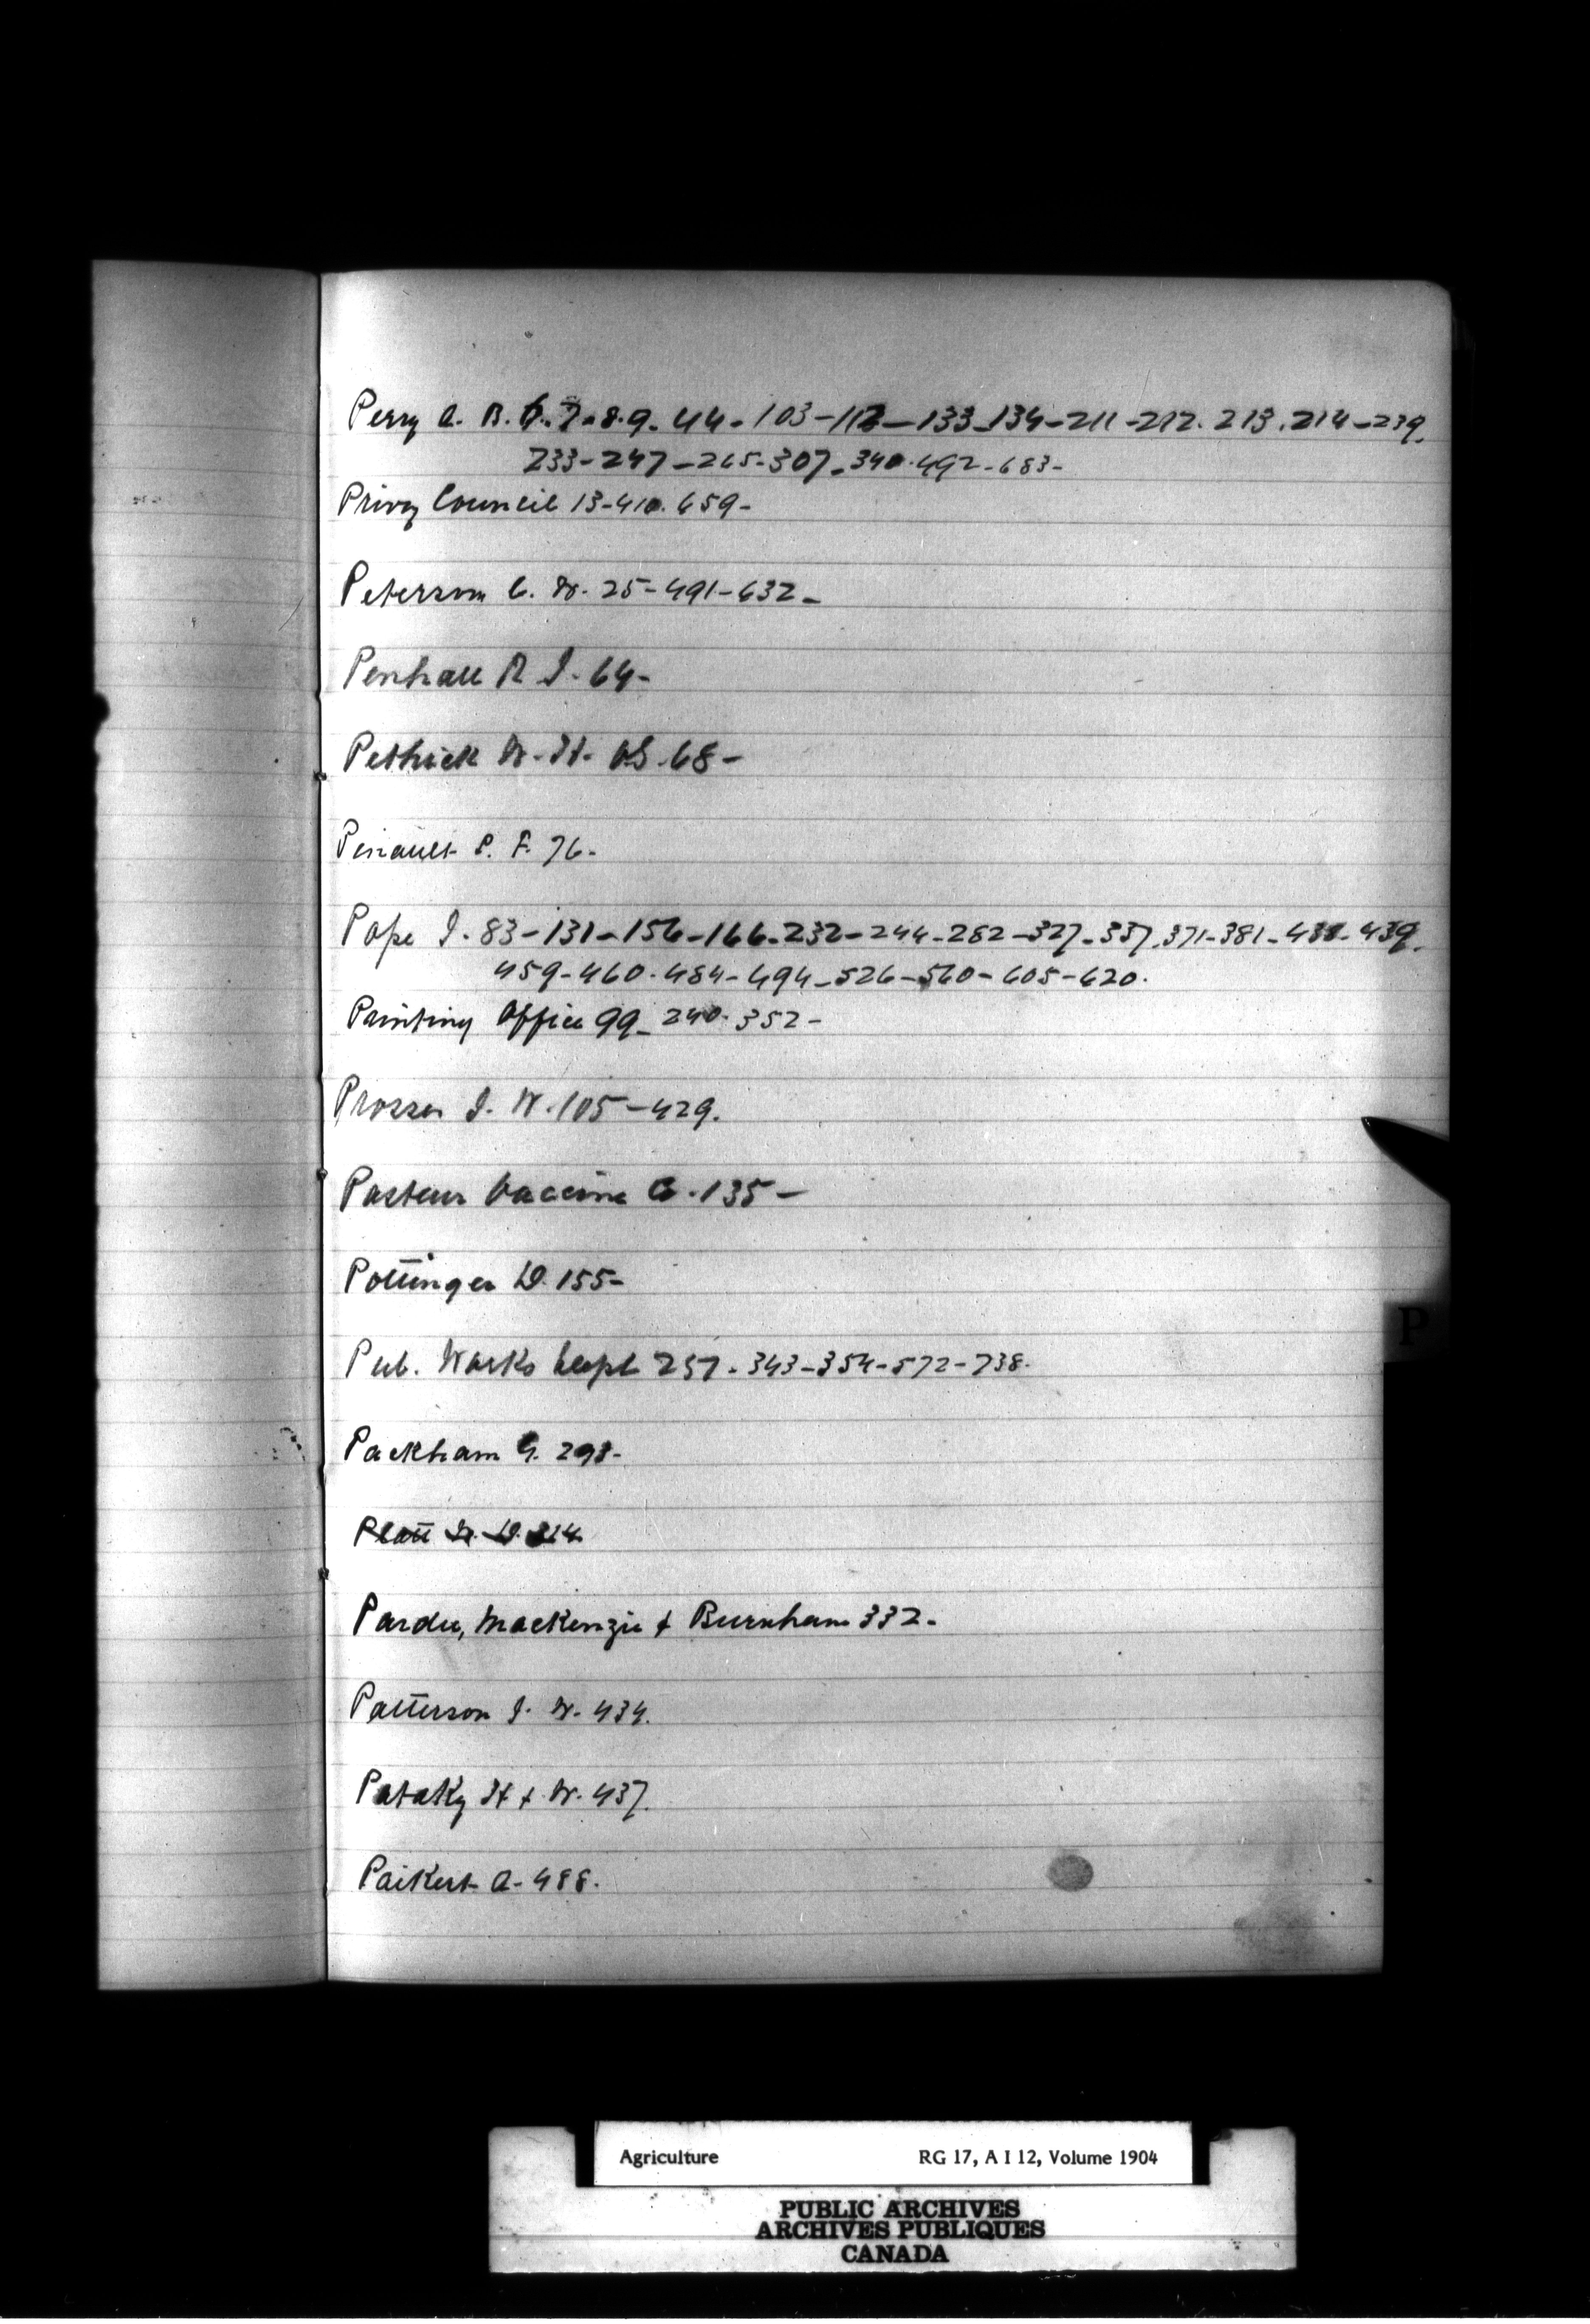 Perry A. B. 6. 7-8.9. 44-103-112-133-134-211-212. 213.214-239.
233-247-265-307-340.492-683-
Privy Council 13-410. 659-
Peterson C. W. 25-491-632-
Penhall R J. 64-
Pethick W. H. VS. 68-
Pinault P. F. 76-
Pope J. 83-131-156-166-232-244-282-327-337.371-381-438-439.
459-460.484-494-526-560-605-620.
Printing Office 99-240.352-
Prosser J. W. 105-429.
Pasteur Vaccine C. 135-
Pottinger D. 155-
Pub. Works Dept 257-343-354-572-738-
Packham G. 298-
Platt W. D. 314
Pardee, MacKenzie & Burnham 332-
Patterson J. W. 434.
Pataky H & W. 437.
Paikert A-488.
P
Agriculture RG 17, A I 12, Volume 1904
PUBLIC ARCHIVES
ARCHIVES PUBLIQUES
CANADA